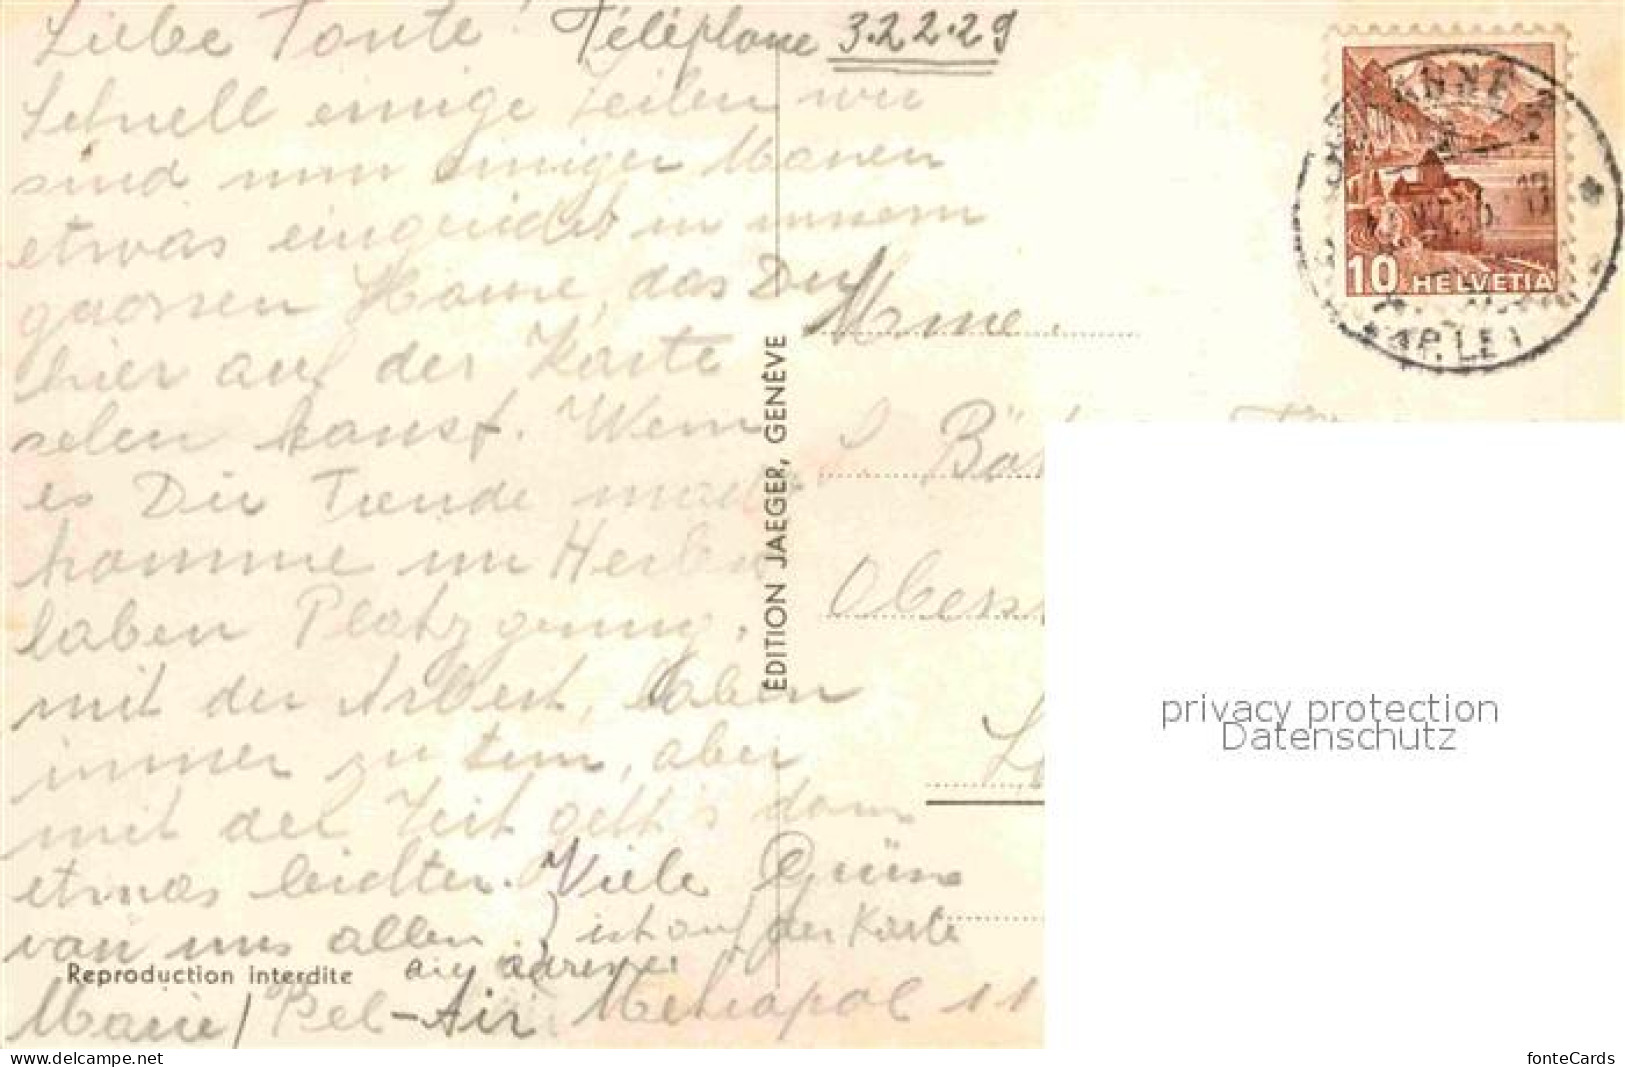 Liebe Tante! Téléphone 3.22.29
Schnell einige Zeilen wir
sind nun einiger Massen
etwas eingerichtet in unserm
grossen Hause, das Du
hier auf der Karte
sehen kanst. Wenn
es Dir Freude macht
komme im Herbst
haben Platz genug,
mit der Arbeit, haben
immer zu tun, aber
mit der Zeit geht's dann
etwas leichter. Viele Grüsse
von uns allen. ist auf der Karte
Reproduction interdite
Marie / Bel-Air Metropol 11
ÉDITION JAEGER, GENÈVE
Mme.
10 HELVETIA
privacy protection
Datenschutz
www.delcampe.net
fonteCards